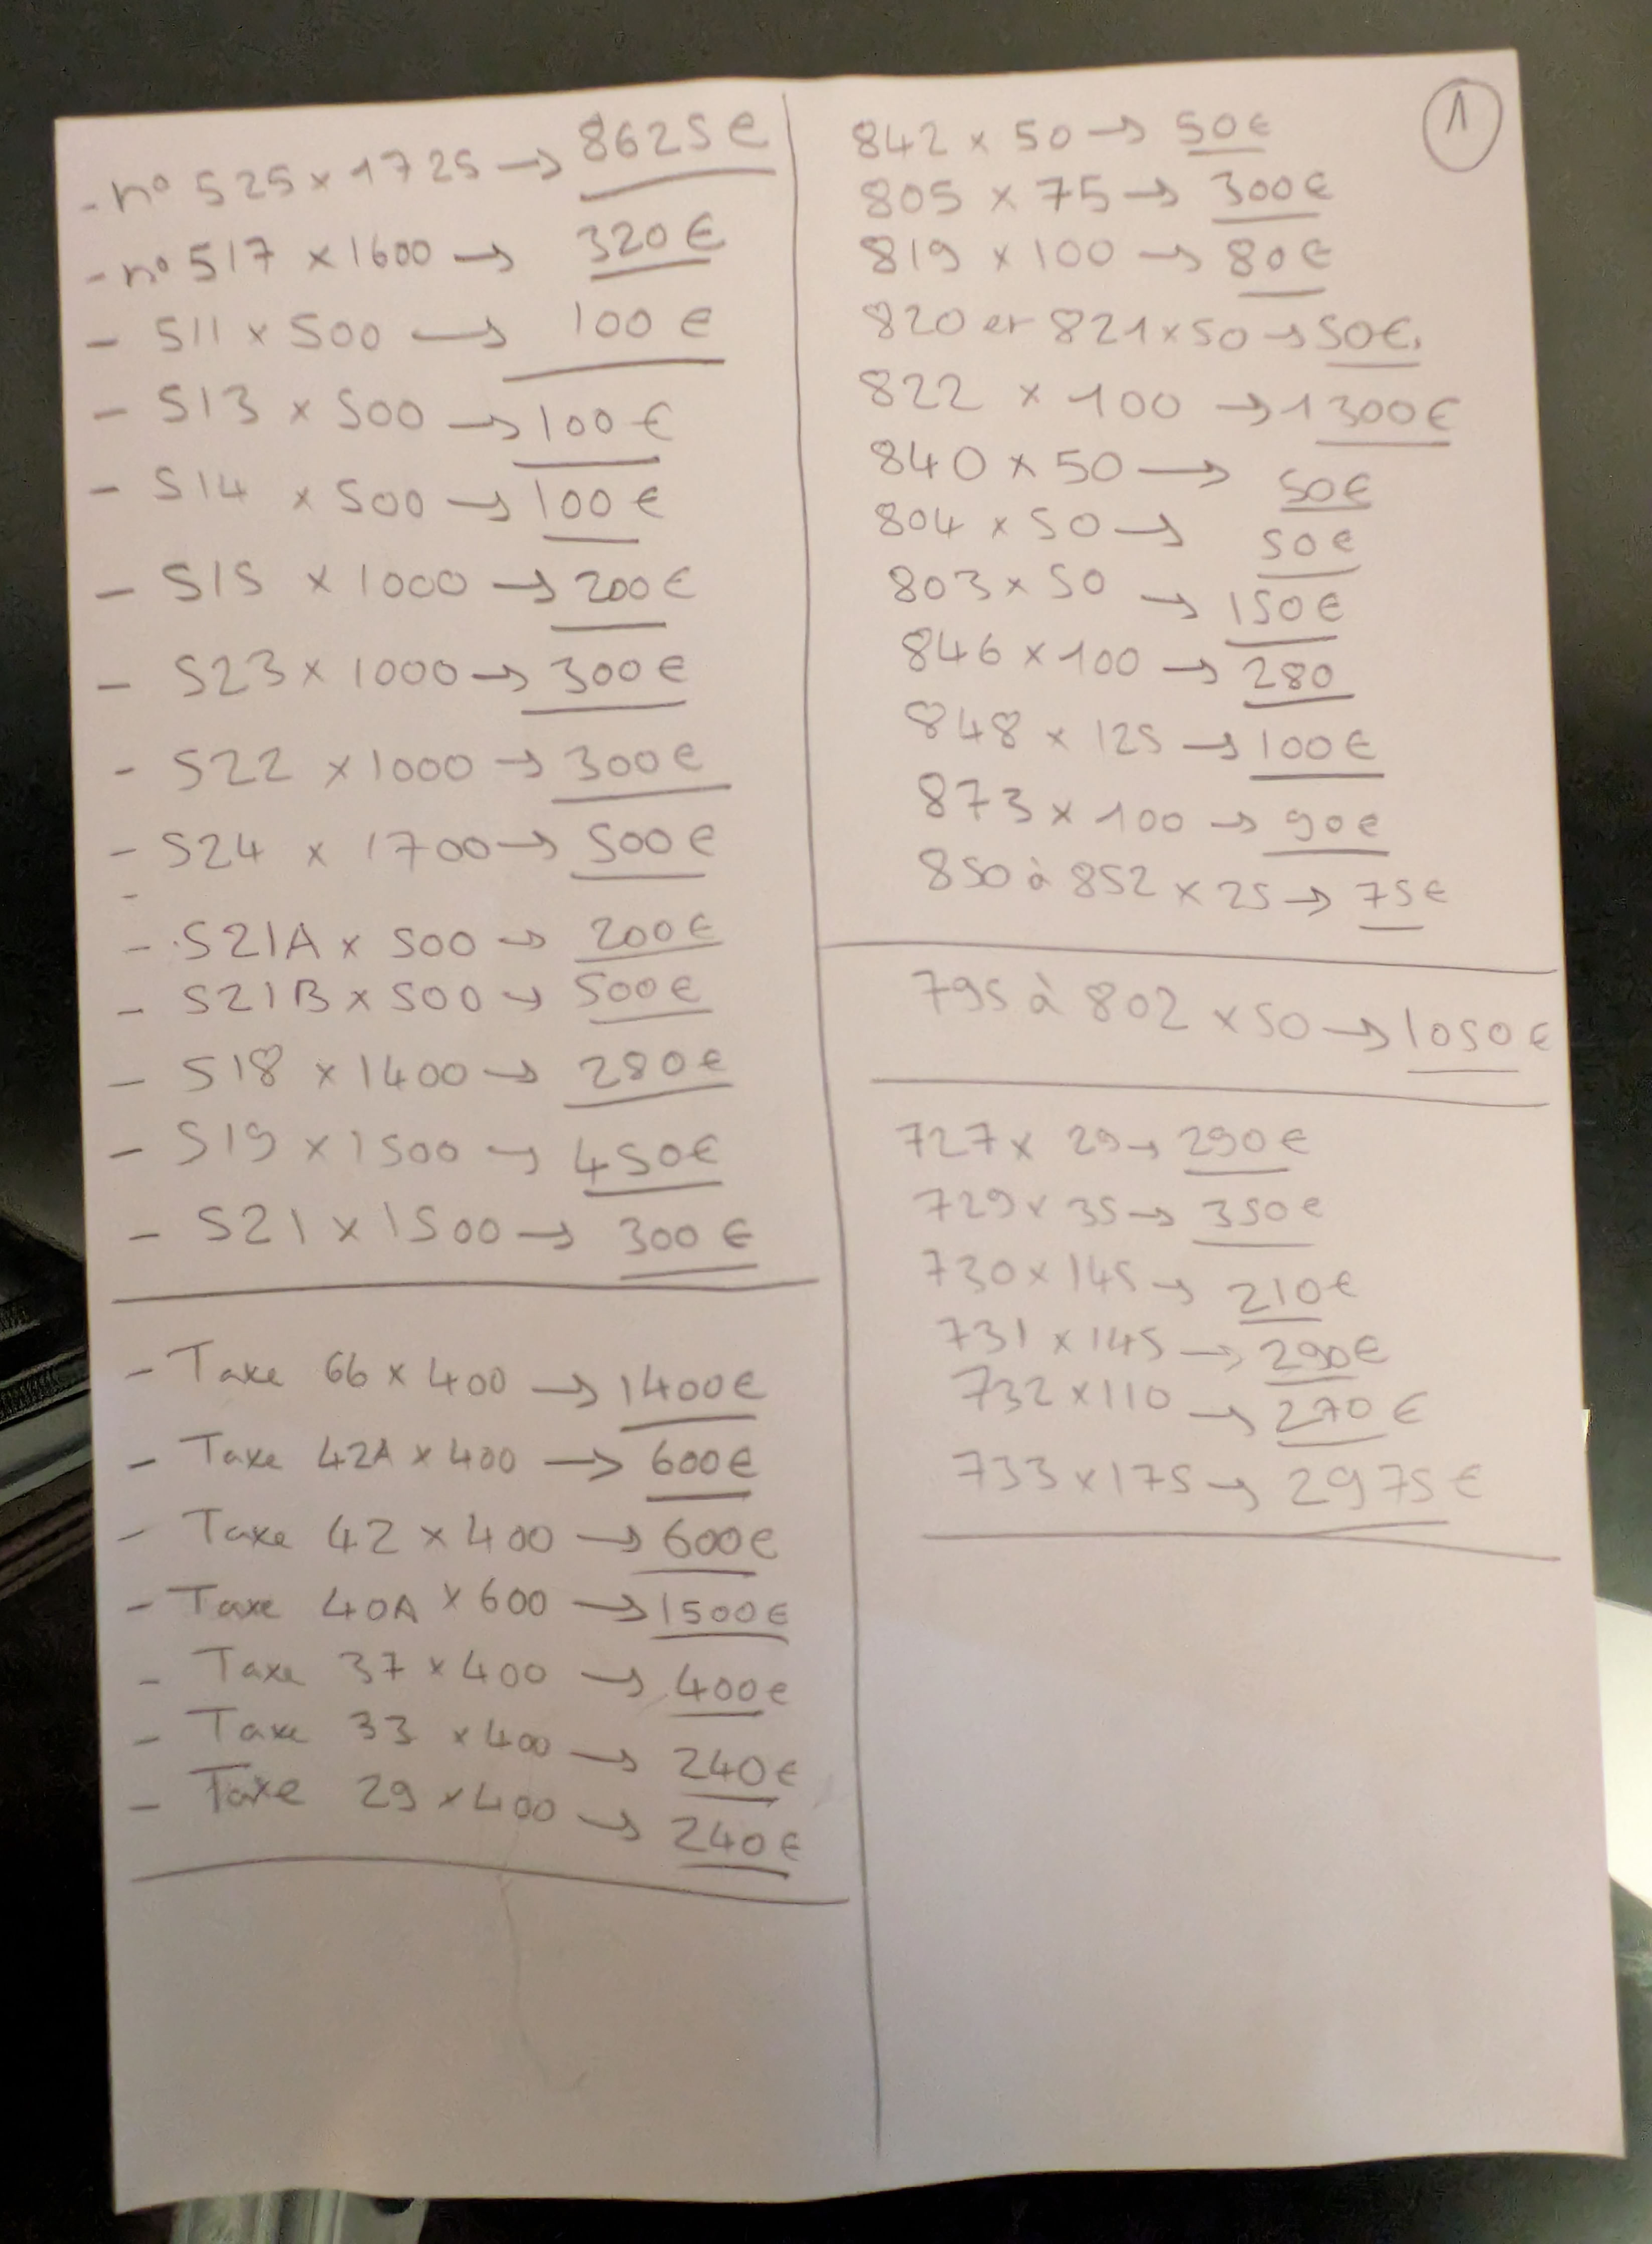 - n° 525 x 1725 → 8625€
- n° 517 x 1600 → 320€
- 511 x 500 → 100€
- 513 x 500 → 100€
- 514 x 500 → 100€
- 515 x 1000 → 200€
- 523 x 1000 → 300€
- 522 x 1000 → 300€
- 524 x 1700 → 500€
-
- 521A x 500 → 200€
- 521B x 500 → 500€
- 518 x 1400 → 280€
- 519 x 1500 → 450€
- 521 x 1500 → 300€
- Taxe 66 x 400 → 1400€
- Taxe 42A x 400 → 600€
- Taxe 42 x 400 → 600€
- Taxe 40A x 600 → 1500€
- Taxe 37 x 400 → 400€
- Taxe 33 x 400 → 240€
- Taxe 29 x 400 → 240€
1
842 x 50 → 50€
805 x 75 → 300€
819 x 100 → 80€
820 et 821 x 50 → 50€.
822 x 100 → 1300€
840 x 50 → 50€
804 x 50 → 50€
803 x 50 → 150€
846 x 100 → 280
848 x 125 → 100€
873 x 100 → 90€
850 à 852 x 25 → 75€
795 à 802 x 50 → 1050€
727 x 29 → 290€
729 x 35 → 350€
730 x 145 → 210€
731 x 145 → 290€
732 x 110 → 270€
733 x 175 → 2975€